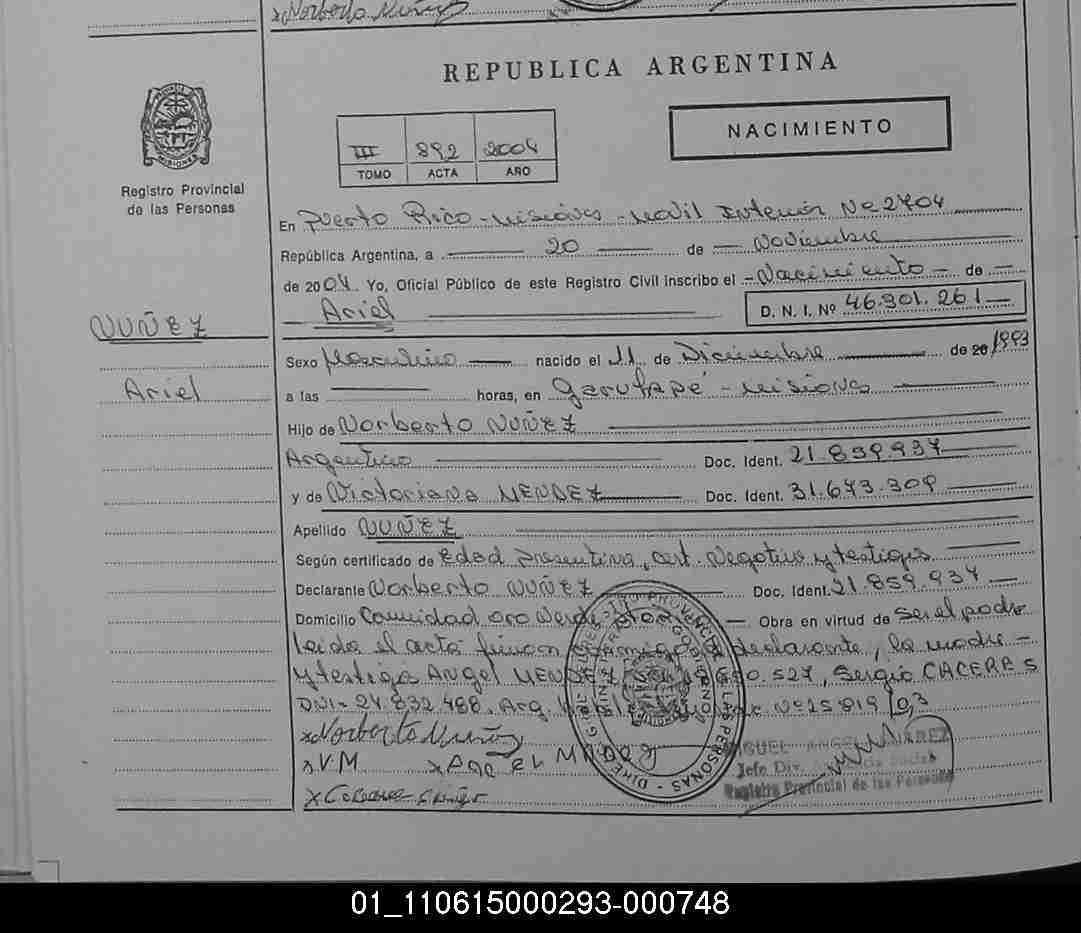 xNorberto Nuñez
REPUBLICA ARGENTINA
PROVINCIA
MISIONES
Registro Provincial
de las Personas
III 892 2004
TOMO ACTA AÑO
NACIMIENTO
En Puerto Rico - Misiones - Movil Interior Nº 2704
República Argentina, a 20 de Noviembre
de 2004. Yo, Oficial Público de este Registro Civil inscribo el - Nacimiento - de -
Ariel
D. N. I. Nº 46.301.261
NUÑEZ
Ariel
Sexo Masculino nacido el 11 de Diciembre de 20 1993
a las horas, en Garuhapé - Misiones
Hijo de Norberto NUÑEZ
Argentino Doc. Ident. 21.859.937
y de Victoriana MENDEZ Doc. Ident. 31.673.309
Apellido NUÑEZ
Según certificado de Edad presuntiva, cert. Negativo y testigos
Declarante Norberto NUÑEZ Doc. Ident. 21.859.937
Domicilio Comunidad oro Verde Obra en virtud de ser el padre
leida el acta firman conmigo el declarante, la madre -
y testigos Angel MENDEZ 527, Sergio CACERES
DNI= 24.832.488. Arg. Nº 25819/03
xNorberto Nuñez
xVM
MIGUEL ANGEL ALVAREZ
Jefe Div.
Registro Provincial de las Personas
01_110615000293-000748